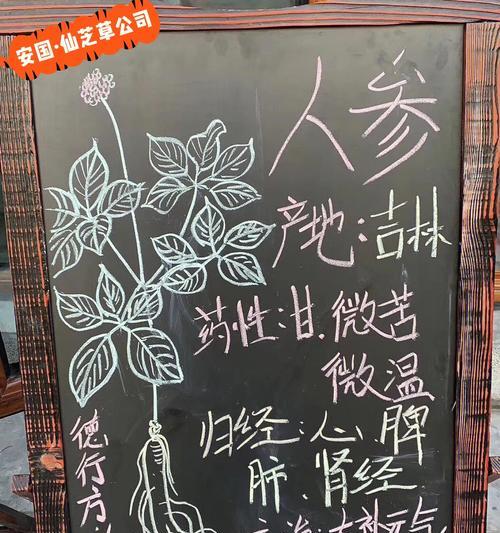 安国·仙芝草公司
人参
产地:吉林
药性:甘.微苦
微温
归经:心.脾
肺.肾经
大补元气
德行方